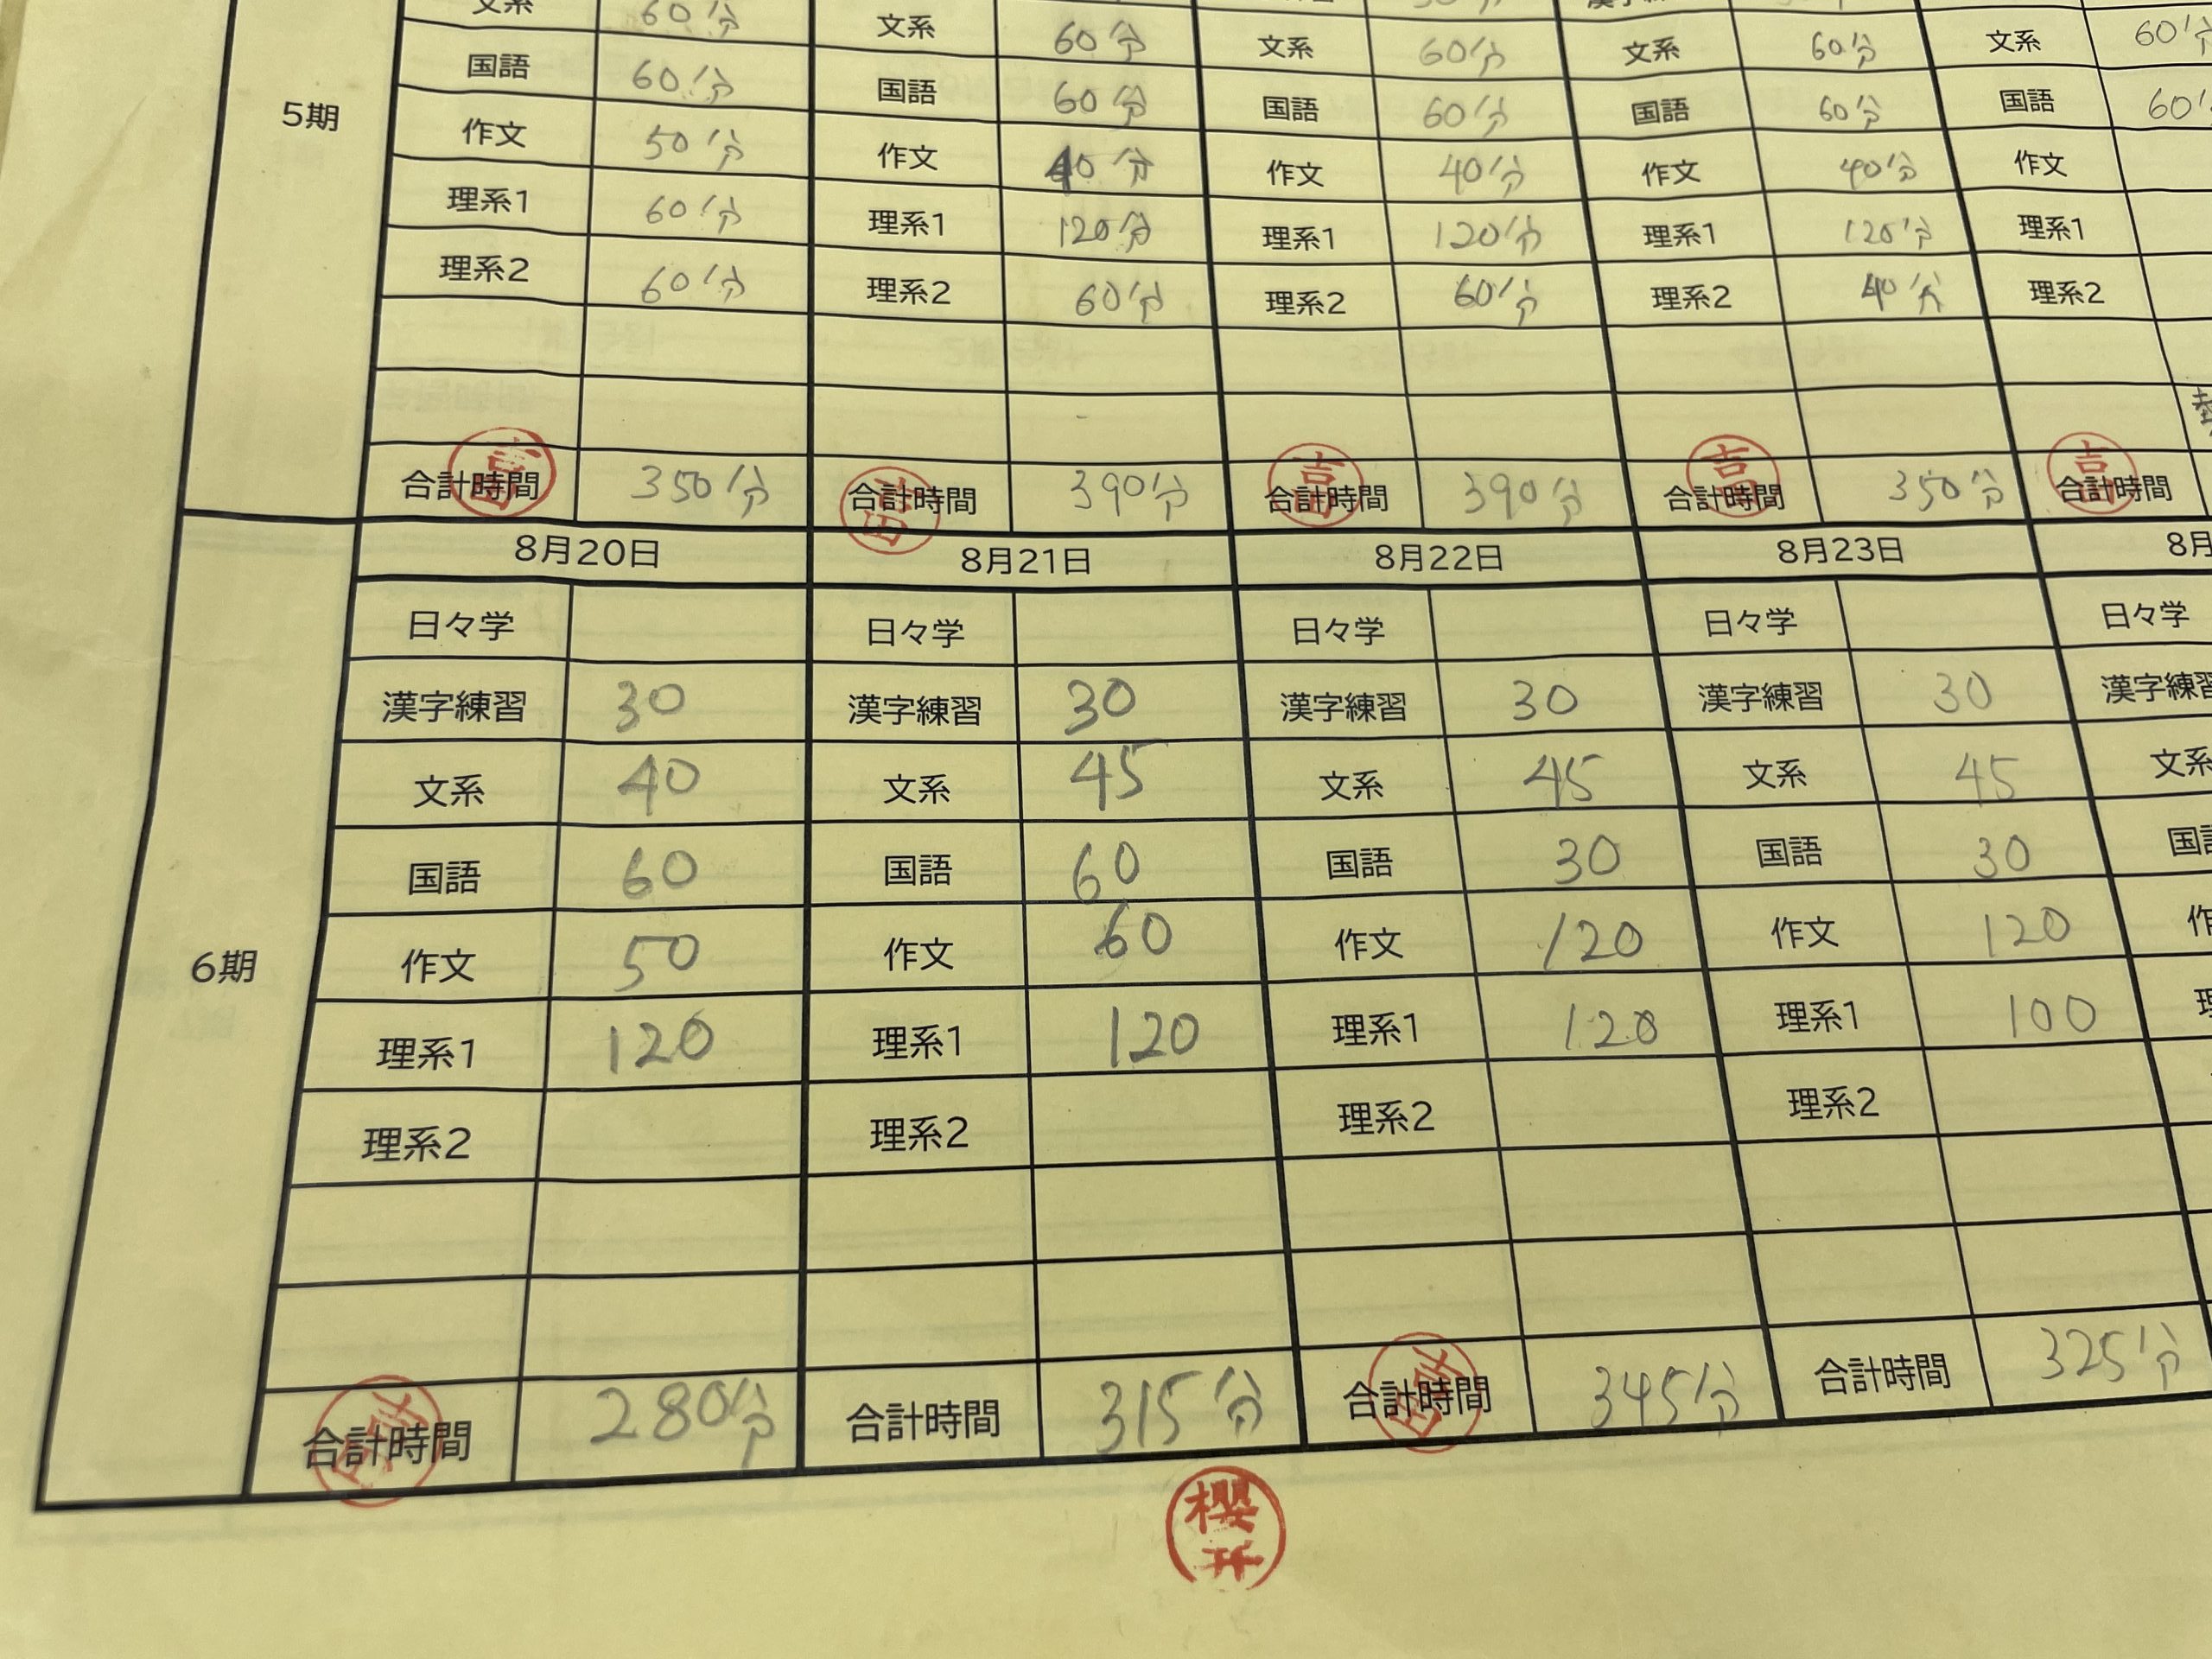 文系 60分 文系 60分 文系 60分 文系 60分 文系 60分
国語 60分 国語 60分 国語 60分 国語 60分 国語 60
5期
作文 50分 作文 40分 作文 40分 作文 40分 作文
理系1 60分 理系1 120分 理系1 120分 理系1 120分 理系1
理系2 60分 理系2 60分 理系2 60分 理系2 40分 理系2
合計時間 350分 合計時間 390分 合計時間 390分 合計時間 350分 合計時間
8月20日 8月21日 8月22日 8月23日 8月
日々学 日々学 日々学 日々学 日々学
漢字練習 30 漢字練習 30 漢字練習 30 漢字練習 30 漢字練習
文系 40 文系 45 文系 45 文系 45 文系
国語 60 国語 60 国語 30 国語 30 国
6期
作文 50 作文 60 作文 120 作文 120 作
理系1 120 理系1 120 理系1 120 理系1 100 理
理系2 理系2 理系2 理系2
合計時間 280分 合計時間 315分 合計時間 345分 合計時間 325分
櫻井